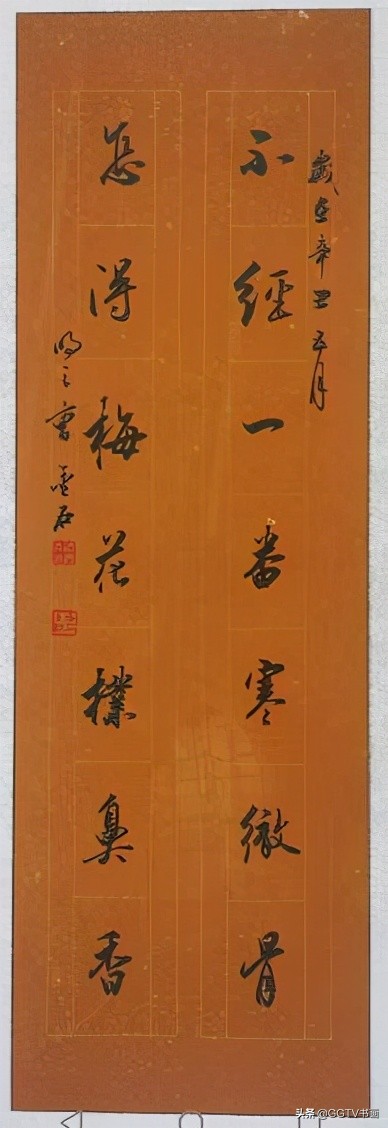 歲在辛丑五月
不經一番寒徹骨
怎得梅花撲鼻香
头条 @GGTV书画